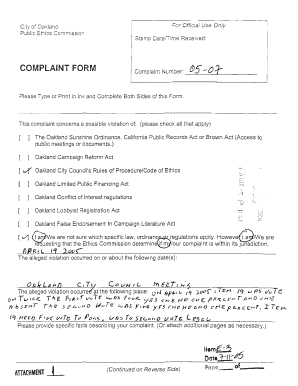 City of Oakland
Public Ethics Commission
For Official Use Only
Stamp Date/Time Received:
COMPLAINT FORM
Complaint Number: 05-07
Please Type or Print in Ink and Complete Both Sides of this Form.
This complaint concerns a possible violation of: (please check all that apply)
[ ] The Oakland Sunshine Ordinance, California Public Records Act or Brown Act (Access to
public meetings or documents.)
[ ] Oakland Campaign Reform Act
[✓] Oakland City Council's Rules of Procedure/Code of Ethics
[ ] Oakland Limited Public Financing Act
[ ] Oakland Conflict of Interest regulations
[ ] Oakland Lobbyist Registration Act
[ ] Oakland False Endorsement in Campaign Literature Act
[✓] I am/We are not sure which specific law, ordinance or regulations apply. However I am/We are
requesting that the Ethics Commission determine if my/our complaint is within its jurisdiction.
APRIL 19 2005
The alleged violation occurred on or about the following date(s):
OAKLAND CITY COUNCIL MEETING
The alleged violation occurred at the following place: ON APRIL 19 2005, ITEM 19 WAS VOTE
ON TWICE THE FIRST VOTE WAS FOUR YES ONE NO ONE PERCENT AND ONE
ABSENT THE SECOND VOTE WAS FIVE YES ONE NO AND ONE PERCENT, I TEM
19 NEED FIVE VOTE TO PASS, WAS TO SECOND VOTE LEGAL
Please provide specific facts describing your complaint. (Or attach additional pages as necessary.)
Item E-3
Date 7-11-05
Page of
ATTACHMENT 1
(Continued on Reverse Side)